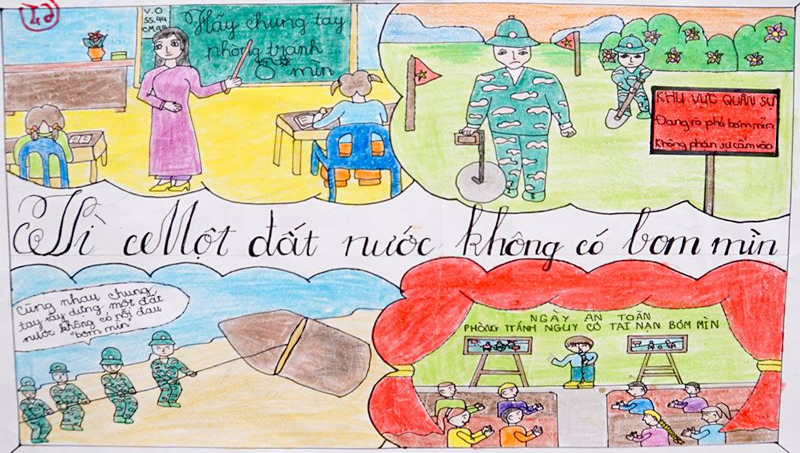 V.O
SS.44
Hãy chung tay
phòng tránh
mìn
KHU VỰC QUÂN SỰ
Đang rà phá bom mìn
Không phận sự cấm vào
Vì Một đất nước không có bom mìn
Cùng nhau chung
tay xây dựng một đất
nước không có nỗi đau
"bom mìn"
NGÀY AN TOÀN
PHÒNG TRÁNH NGUY CƠ TAI NẠN BOM MÌN